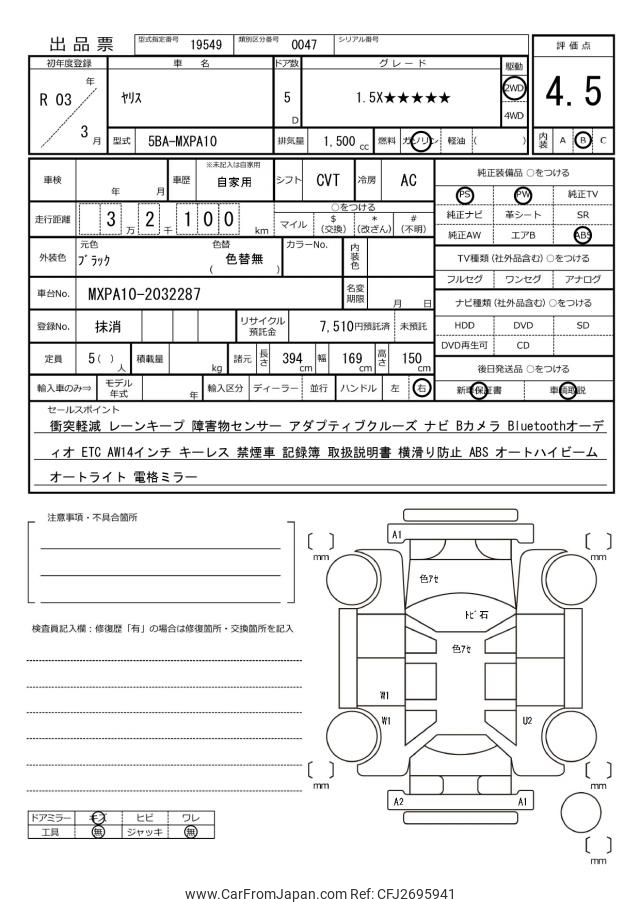 出品票
型式指定番号 19549 類別区分番号 0047 シリアル番号
評価点
4.5
内装 A B C
初年度登録 車名 ドア数 グレード 駆動
R 03 年 3 月
ヤリス
5 D
1.5X★★★★★
2WD
4WD
型式 5BA-MXPA10 排気量 1,500 cc 燃料 ガソリン 軽油 ( )
車検 年 月
車歴 ※未記入は自家用 自家用
シフト CVT 冷房 AC
走行距離 3 2 万 千 1 0 0 km
○をつける
マイル $(交換) *(改ざん) #(不明)
外装色 元色 ブラック 色替 ( 色替無 )
カラーNo. 内装色
車台No. MXPA10-2032287
名変期限 月 日
登録No. 抹消
リサイクル預託金 7,510円預託済 未預託
定員 5( )人 積載量 kg 諸元 長さ 394 cm 幅 169 cm 高さ 150 cm
輸入車のみ⇒ モデル年式 年 輸入区分 ディーラー 並行 ハンドル 左 右
純正装備品 ○をつける
PS PW 純正TV
純正ナビ 革シート SR
純正AW エアB ABS
TV種類(社外品含む)○をつける
フルセグ ワンセグ アナログ
ナビ種類(社外品含む)○をつける
HDD DVD SD
DVD再生可 CD
後日発送品 ○をつける
新車保証書 車輌取説
セールスポイント
衝突軽減 レーンキープ 障害物センサー アダプティブクルーズ ナビ Bカメラ Bluetoothオーデ
ィオ ETC AW14インチ キーレス 禁煙車 記録簿 取扱説明書 横滑り防止 ABS オートハイビーム
オートライト 電格ミラー
注意事項・不具合箇所
検査員記入欄：修復歴「有」の場合は修復箇所・交換箇所を記入
ドアミラー キズ ヒビ ワレ
工具 無 ジャッキ 無
A1
[ ] mm
[ ] mm
色アセ
トビ石
色アセ
W1
W1
U2
[ ] mm
[ ] mm
A2 A1
[ ] mm
www.CarFromJapan.com Ref: CFJ2695941